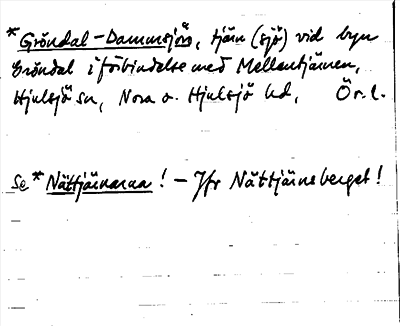 *Gröndal-Dammsjön, tjärn (sjö) vid byn
Gröndal i förbindelse med Mellantjärnen,
Hjulsjö sn, Nora o. Hjulsjö hd, Ör. l.
Se *Nättjärnarna! - Jfr Nättjärnsberget!